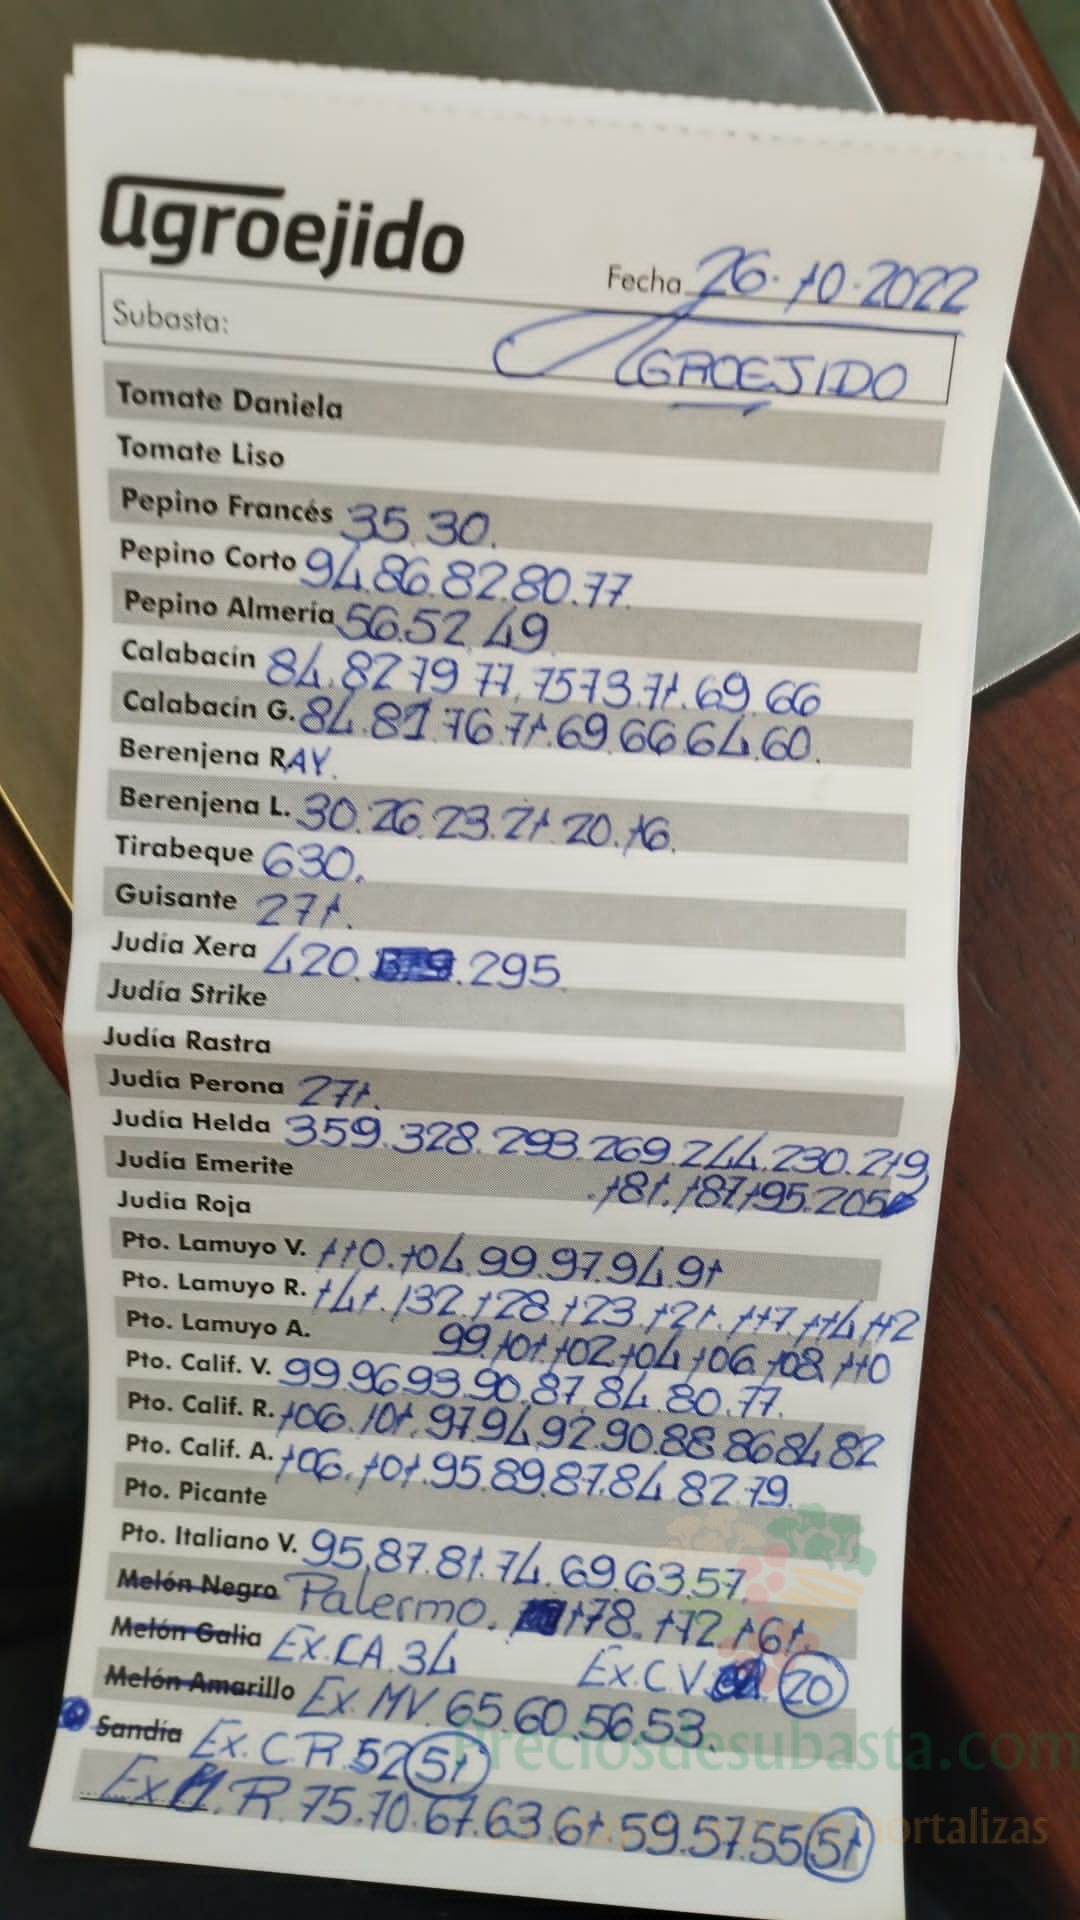 agroejido
Fecha 26.10.2022
Subasta: AGROEJIDO
Tomate Daniela
Tomate Liso
Pepino Francés 35.30.
Pepino Corto 94.86.82.80.77.
Pepino Almería 56.52.49
Calabacín 84.82 79 77.75 73.71.69.66
Calabacín G. 84.81.76 71.69 66 64.60.
Berenjena RAY.
Berenjena L. 30.26.23.21 20.16.
Tirabeque 630.
Guisante 271.
Judía Xera 420. .295
Judía Strike
Judía Rastra
Judía Perona 271.
Judía Helda 359.328.293.269.244.230.219
Judía Emerite .181.187.195.205
Judía Roja
Pto. Lamuyo V. 110.104.99.97.94.91
Pto. Lamuyo R. 141.132.128.123.121.117.114.112
Pto. Lamuyo A. 99.101.102.104.106.108.110
Pto. Calif. V. 99.96 93.90.87.84.80.77.
Pto. Calif. R. 106.101.97.94.92.90.88.86 84 82
Pto. Calif. A. 106.101.95.89.87.84 82.79.
Pto. Picante
Pto. Italiano V. 95.87.81.74.69.63.57.
Melón Negro Palermo. 178.172.161.
Melón Galia Ex.CA.34 Ex.C V. 20
Melón Amarillo Ex.MV.65.60.56.53.
Sandía Ex.C R.52 51
Ex M.R.75.70.67.63.61.59.57.55 51
Preciosdesubasta.com
hortalizas